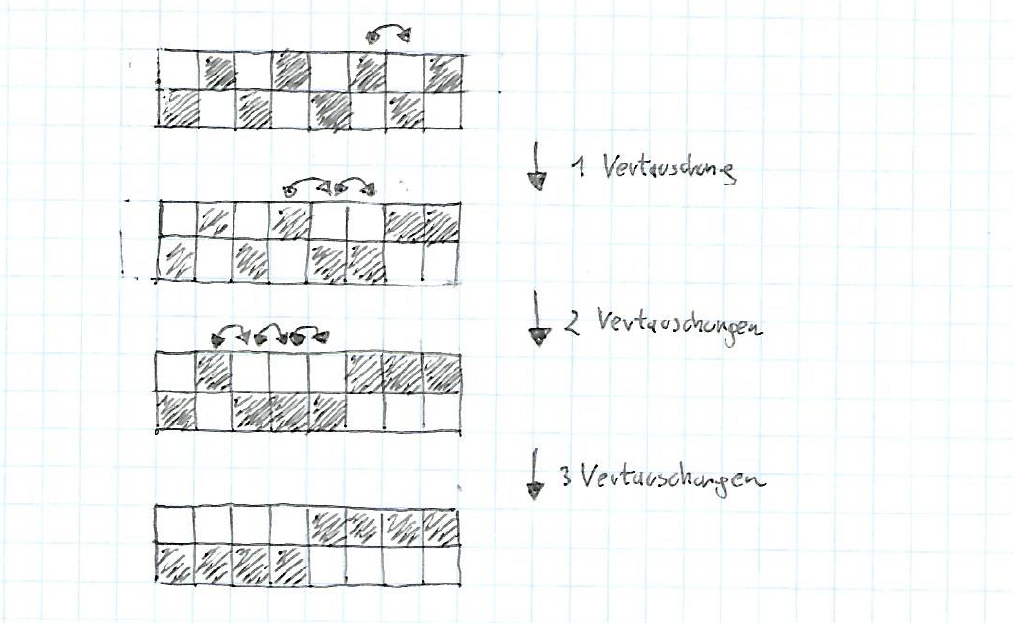 1 Vertauschung
2 Vertauschungen
3 Vertauschungen